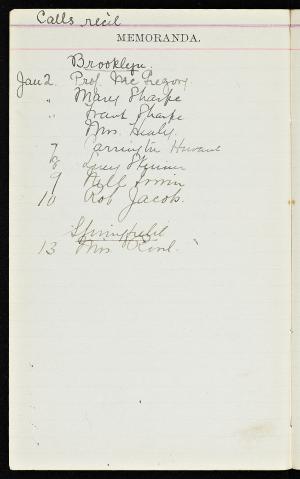 Calls rec'd
MEMORANDA.
Brooklyn.
Jan 2. Prof. McGregory.
" Mary Sharpe
" Frank Sharpe
Mrs. Healy.
7 Carrington Howard
8 Lucy Skinner
9 Nell Irwin
10 Rob Jacobs.
Springfield
13 Mrs.